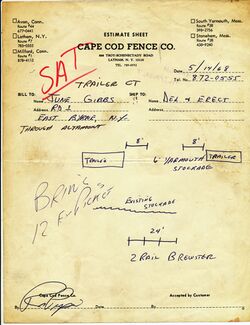 Avon, Conn.
Route #44
677-0441
Latham, N.Y.
Route #7
785-5052
Milford, Conn.
Route #1
ESTIMATE SHEET
CAPE COD FENCE CO.
LATHAM, N. Y.
South Yarmouth, Mass.
Route #28
398-2756
Stoneham, Mass.
Route #28
438-9240
5/14/68
Tel. No. 872-0555
SAT
TRAILER CT
BILL TO:
Name JUNE GIBBS
SHIP TO:
Name DEL & ERECT
Address RD 1
Address
EAST BERNE, N.Y.
THROUGH ALTAMONT
8'
8'
TRAILER
6' YARMOUTH
STOCKADE
TRAILER
BRING
EXISTING
STOCKADE
24'
2 RAIL BREWSTER
Cape Cod Fence Co.
Accepted by Customer